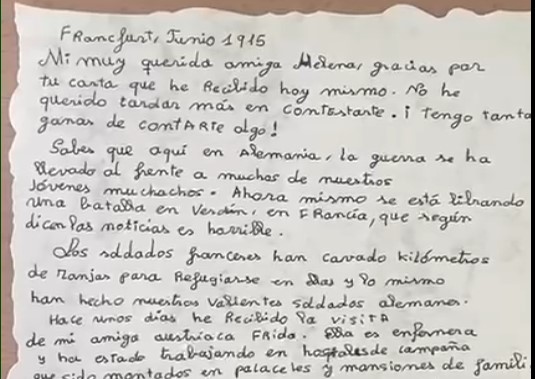 Francfurt, Junio 1915
Mi muy querida amiga Helena, gracias por
tu carta que he Recibido hoy mismo. No he
querido tardar más en contestarte. ¡Tengo tanta
ganas de contARte algo!
Sabes que aquí en Alemania, la guerra se ha
llevado al frente a muchos de nuestros
jóvenes muchachos. Ahora mismo se está librando
una batalla en Verdún, en FRancia, que según
dicen las noticias es horrible.
Los soldados franceses han cavado kilómetros
de zanjas para Refugiarse en ellas y lo mismo
han hecho nuestros valientes soldados alemanes.
Hace unos días he Recibido la visitA
de mi amiga austríaca FRida. Ella es enfermera
y ha estado trabajando en hospitales de campaña
que sido montados en palacetes y mansiones de famili